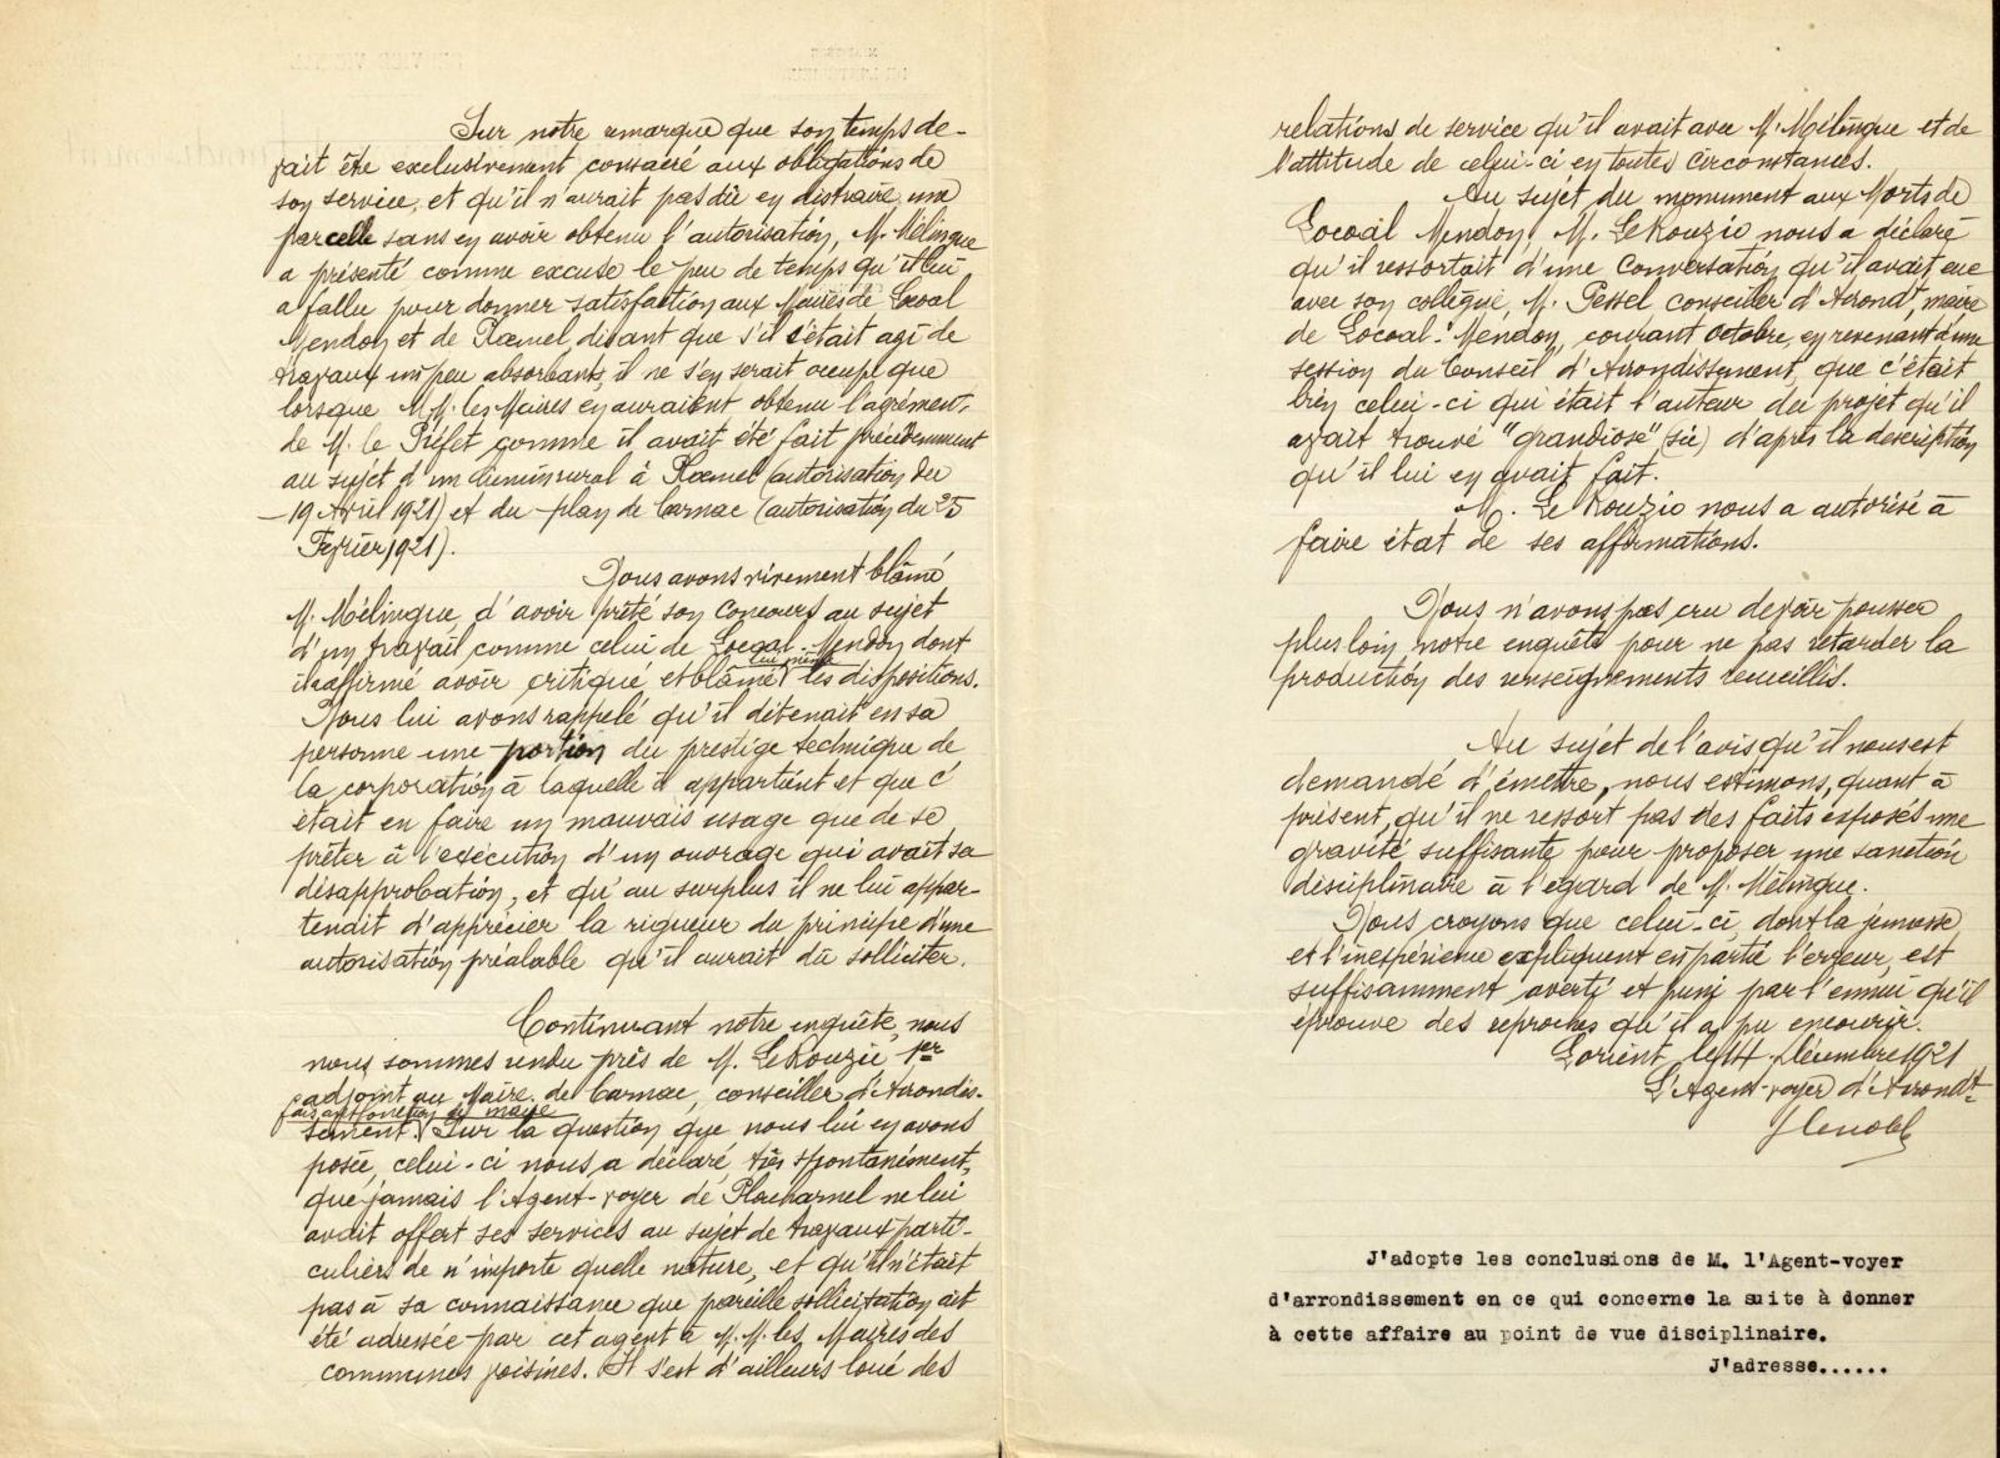 Sur notre remarque que son temps de-
vait être exclusivement consacré aux obligations de
son service, et qu'il n'aurait pas dû en distraire une
parcelle sans en avoir obtenu l'autorisation, M. Mélingue
a présenté comme excuse le peu de temps qu'il lui
a fallu pour donner satisfaction aux Maires de Locoal
Mendon et de Plœmel, disant que s'il s'était agi de
travaux un peu absorbants, il ne s'en serait occupé que
lorsque M.M. les Maires en auraient obtenu l'agrément
de M. le Préfet comme il avait été fait précédemment
au sujet d'un chemin rural à Plœmel (autorisation du
19 Avril 1921) et du plan de Carnac (autorisation du 25
Février 1921).
Nous avons vivement blâmé
M. Mélingue d'avoir prêté son concours au sujet
d'un travail comme celui de Locoal-Mendon dont
il a affirmé avoir critiqué et blâmé lui même les dispositions.
Nous lui avons rappelé qu'il détenait en sa
personne une portion du prestige technique de
la corporation à laquelle il appartient et que c'
était en faire un mauvais usage que de se
prêter à l'exécution d'un ouvrage qui avait sa
désapprobation, et qu'au surplus il ne lui appar-
tenait d'apprécier la rigueur du principe d'une
autorisation préalable qu'il aurait dû solliciter.
Continuant notre enquête, nous
nous sommes rendu près de M. Le Rouzic 1er
adjoint au Maire de Carnac, conseiller d'Arrondis-
sement. faisant fonction de maire Sur la question que nous lui en avons
posée, celui-ci nous a déclaré, très spontanément,
que jamais l'Agent-voyer de Plouharnel ne lui
avait offert ses services au sujet de travaux parti-
culiers de n'importe quelle nature, et qu'il n'était
pas à sa connaissance que pareille sollicitation ait
été adressée par cet agent à M.M. les Maires des
communes voisines. Il s'est d'ailleurs loué des
relations de service qu'il avait avec M. Mélingue et de
l'attitude de celui-ci en toutes circonstances.
Au sujet du monument aux Morts de
Locoal Mendon, M. Le Rouzic nous a déclaré
qu'il ressortait d'une conversation qu'il avait eue
avec son collègue, M. Pessel conseiller d'Arrondt, maire
de Locoal-Mendon, courant octobre, en revenant d'une
session du Conseil d'Arrondissement, que c'était
bien celui-ci qui était l'auteur du projet qu'il
avait trouvé "grandiose" (sic) d'après la description
qu'il lui en avait fait.
M. Le Rouzic nous a autorisé à
faire état de ses affirmations.
Nous n'avons pas cru devoir pousser
plus loin notre enquête pour ne pas retarder la
production des renseignements recueillis.
Au sujet de l'avis qu'il nous est
demandé d'émettre, nous estimons, quant à
présent, qu'il ne ressort pas des faits exposés une
gravité suffisante pour proposer une sanction
disciplinaire à l'égard de M. Mélingue.
Nous croyons que celui-ci, dont la jeunesse
et l'inexpérience expliquent en partie l'erreur, est
suffisamment averti et puni par l'ennui qu'il
éprouve des reproches qu'il a pu encourir.
Lorient, le 14 Décembre 1921
L'Agent-voyer d'Arrondt
J'adopte les conclusions de M. l'Agent-voyer
d'arrondissement en ce qui concerne la suite à donner
à cette affaire au point de vue disciplinaire.
J'adresse......